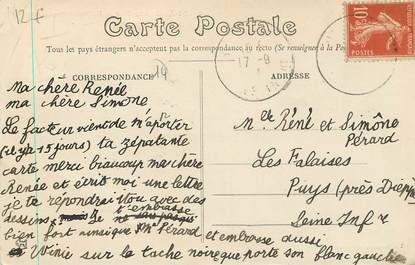 12 €
Carte Postale
Tous les pays étrangers n'acceptent pas la correspondance au recto (Se renseigner à la
CORRESPONDANCE
ADRESSE
19
17-9
10
POSTES
Ma chère Renée
ma chère Simone,
Le facteur vient de m'aporter
(il y a 15 jours) ta zépatante
carte merci biaucoup ma chère
Renée et écrit moi une lettre
je te répondrai itou avec des
dessins, mais je t'embrasse
bien fort ainsi que Mr Pérard et embrasse aussi
Winie sur la tache noire que porte son flanc gauche
Mlle Réné et Simône
Pérard
Les Falaises
Puys (près Diepp
Seine Infre